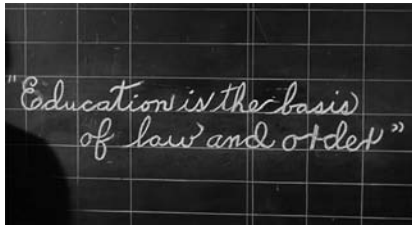 "Education is the basis
of law and order"